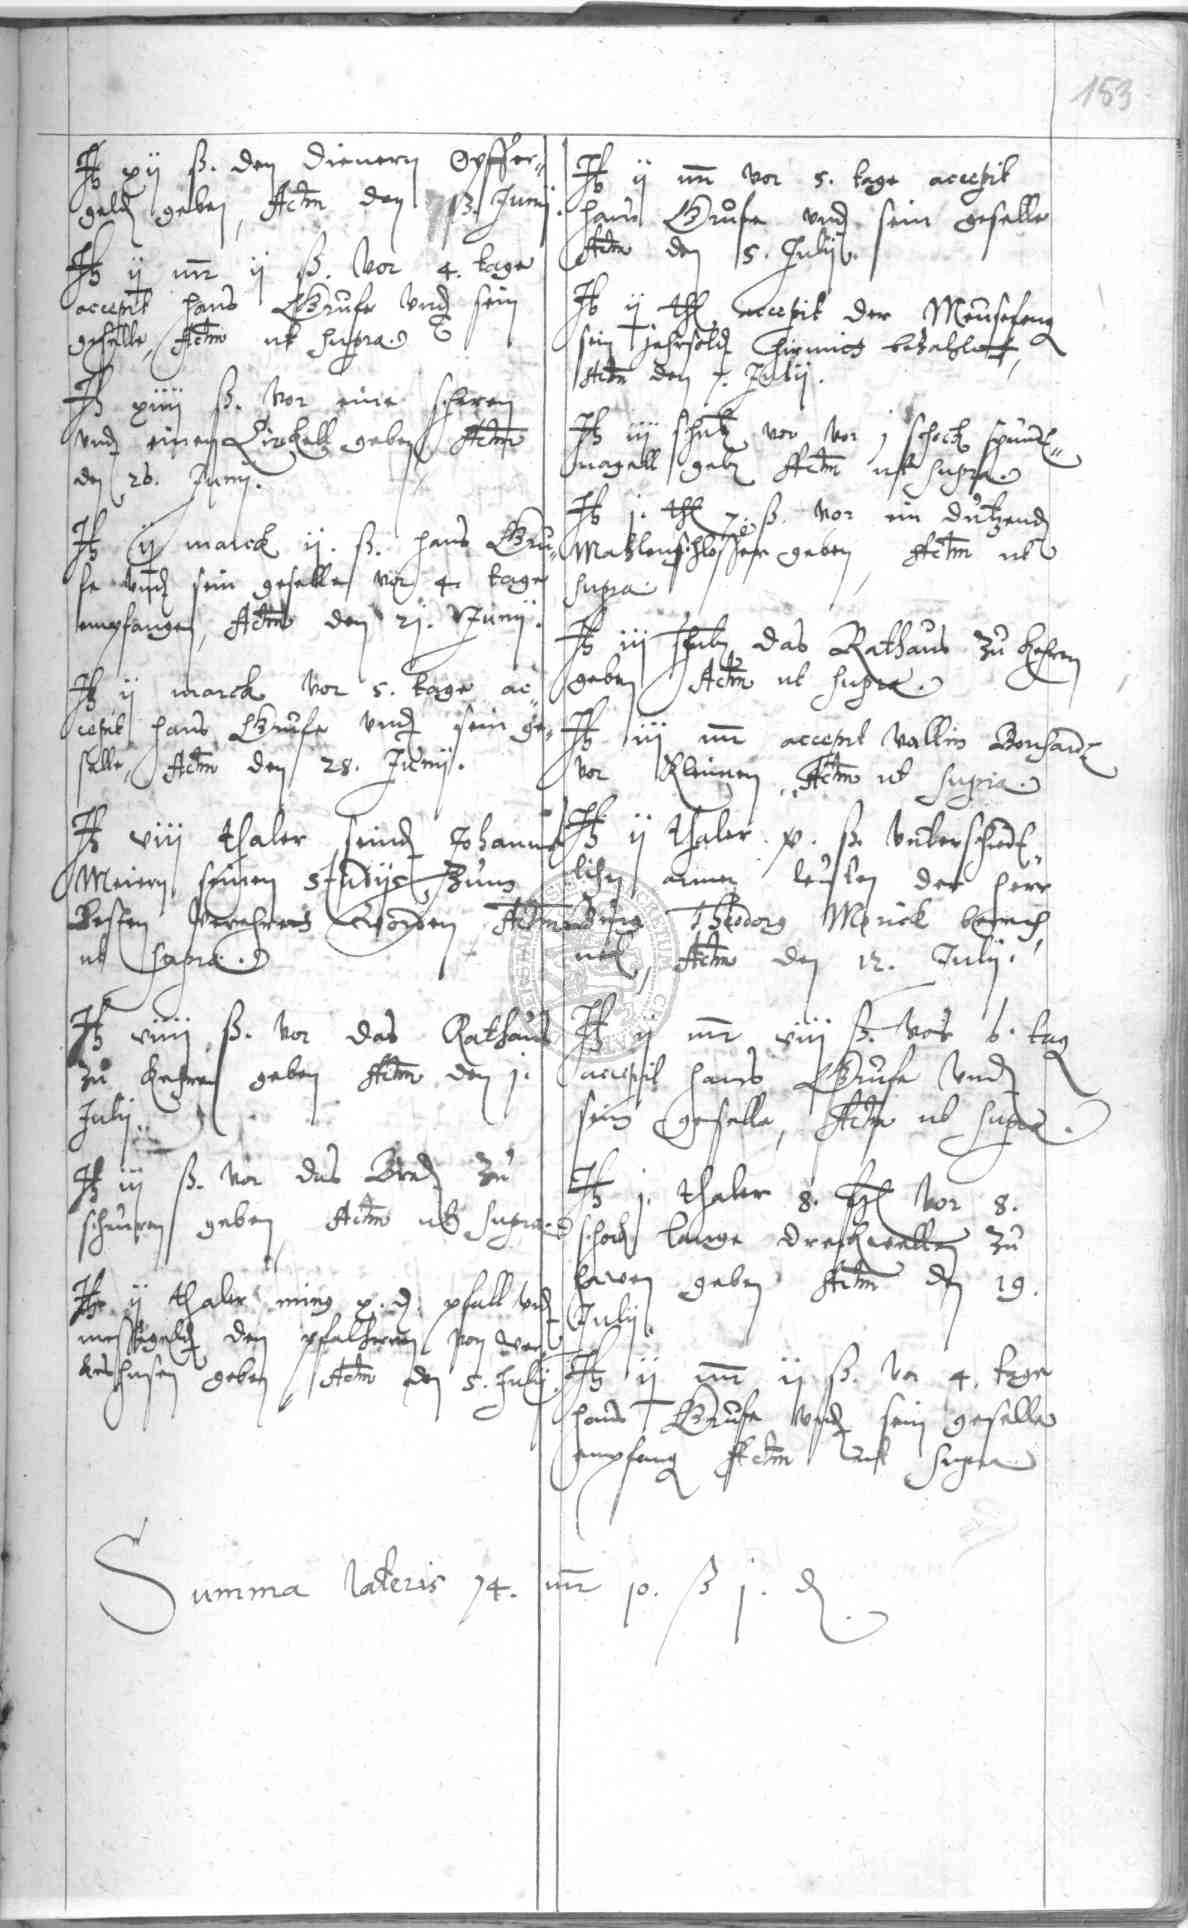 153
It xij ß. den Dienern Opffer-
geldt geben, Actm den 13. Junij.
It ij mr ij ß. vor 4. tage
accepit hans Grufe vnd sein
geselle, Actm ut supra.
It xiiij ß. vor eine scheren
vnd einen Zirckell geben Actm
den 26. Junij.
It ij marck ij. ß. hans Gru-
fe vnd sein geselle vor 4. tage
empfangen, Actm den 21. Junij.
It ij marck vor 5. tage ac-
cepit hans Grufe vnd sein ge-
selle, Actm den 28. Junij.
It viij thaler seind Johannes
Meiern seinen Studijs zum
Besten verehret worden Actm
ut supra.
It viiij ß. vor das Rathaus
zu kehren geben Actm den 1.
Julij.
It iij ß. vor das Bredt zu
scheuren geben Actm ut supra.
It ij thaler ming x. d. pfall vnd
messegeldt den pfalherrn von
husen geben, Actm den 5. Julij.
It ij mr vor 5. tage accepit
hans Grufe vnd sein geselle
Actm den 5. Julij.
It ij thl accepit der Meusefeng
sein Jahrsoldt bezahlet,
Actm den 7. Julij.
It iij vor 1 schock
nagell geben Actm ut supra.
It j. thl ß. vor ein dutzend
Mahlenschlosser geben, Actm ut
supra.
It iij das Rathaus zu kehren
geben Actm ut supra.
It iij mr accepit Vallin
vor Actm ut supra.
It ij thaler x. ß. vnterschied-
lichen armen leuten der herr
Theodorg Mörick
Actm den 12. Julij.
It ij mr viij ß. vor 6. tag
accepit hans Grufe vnd
sein geselle, Actm ut supra.
It j. thaler 8. vor 8.
schock lange zu
geben Actm den 19.
Julij.
It ij mr ij ß. vor 4. tage
hans Grufe vnd sein geselle
empfang Actm ut supra
Summa lateris 74. mr 10. ß j. d.